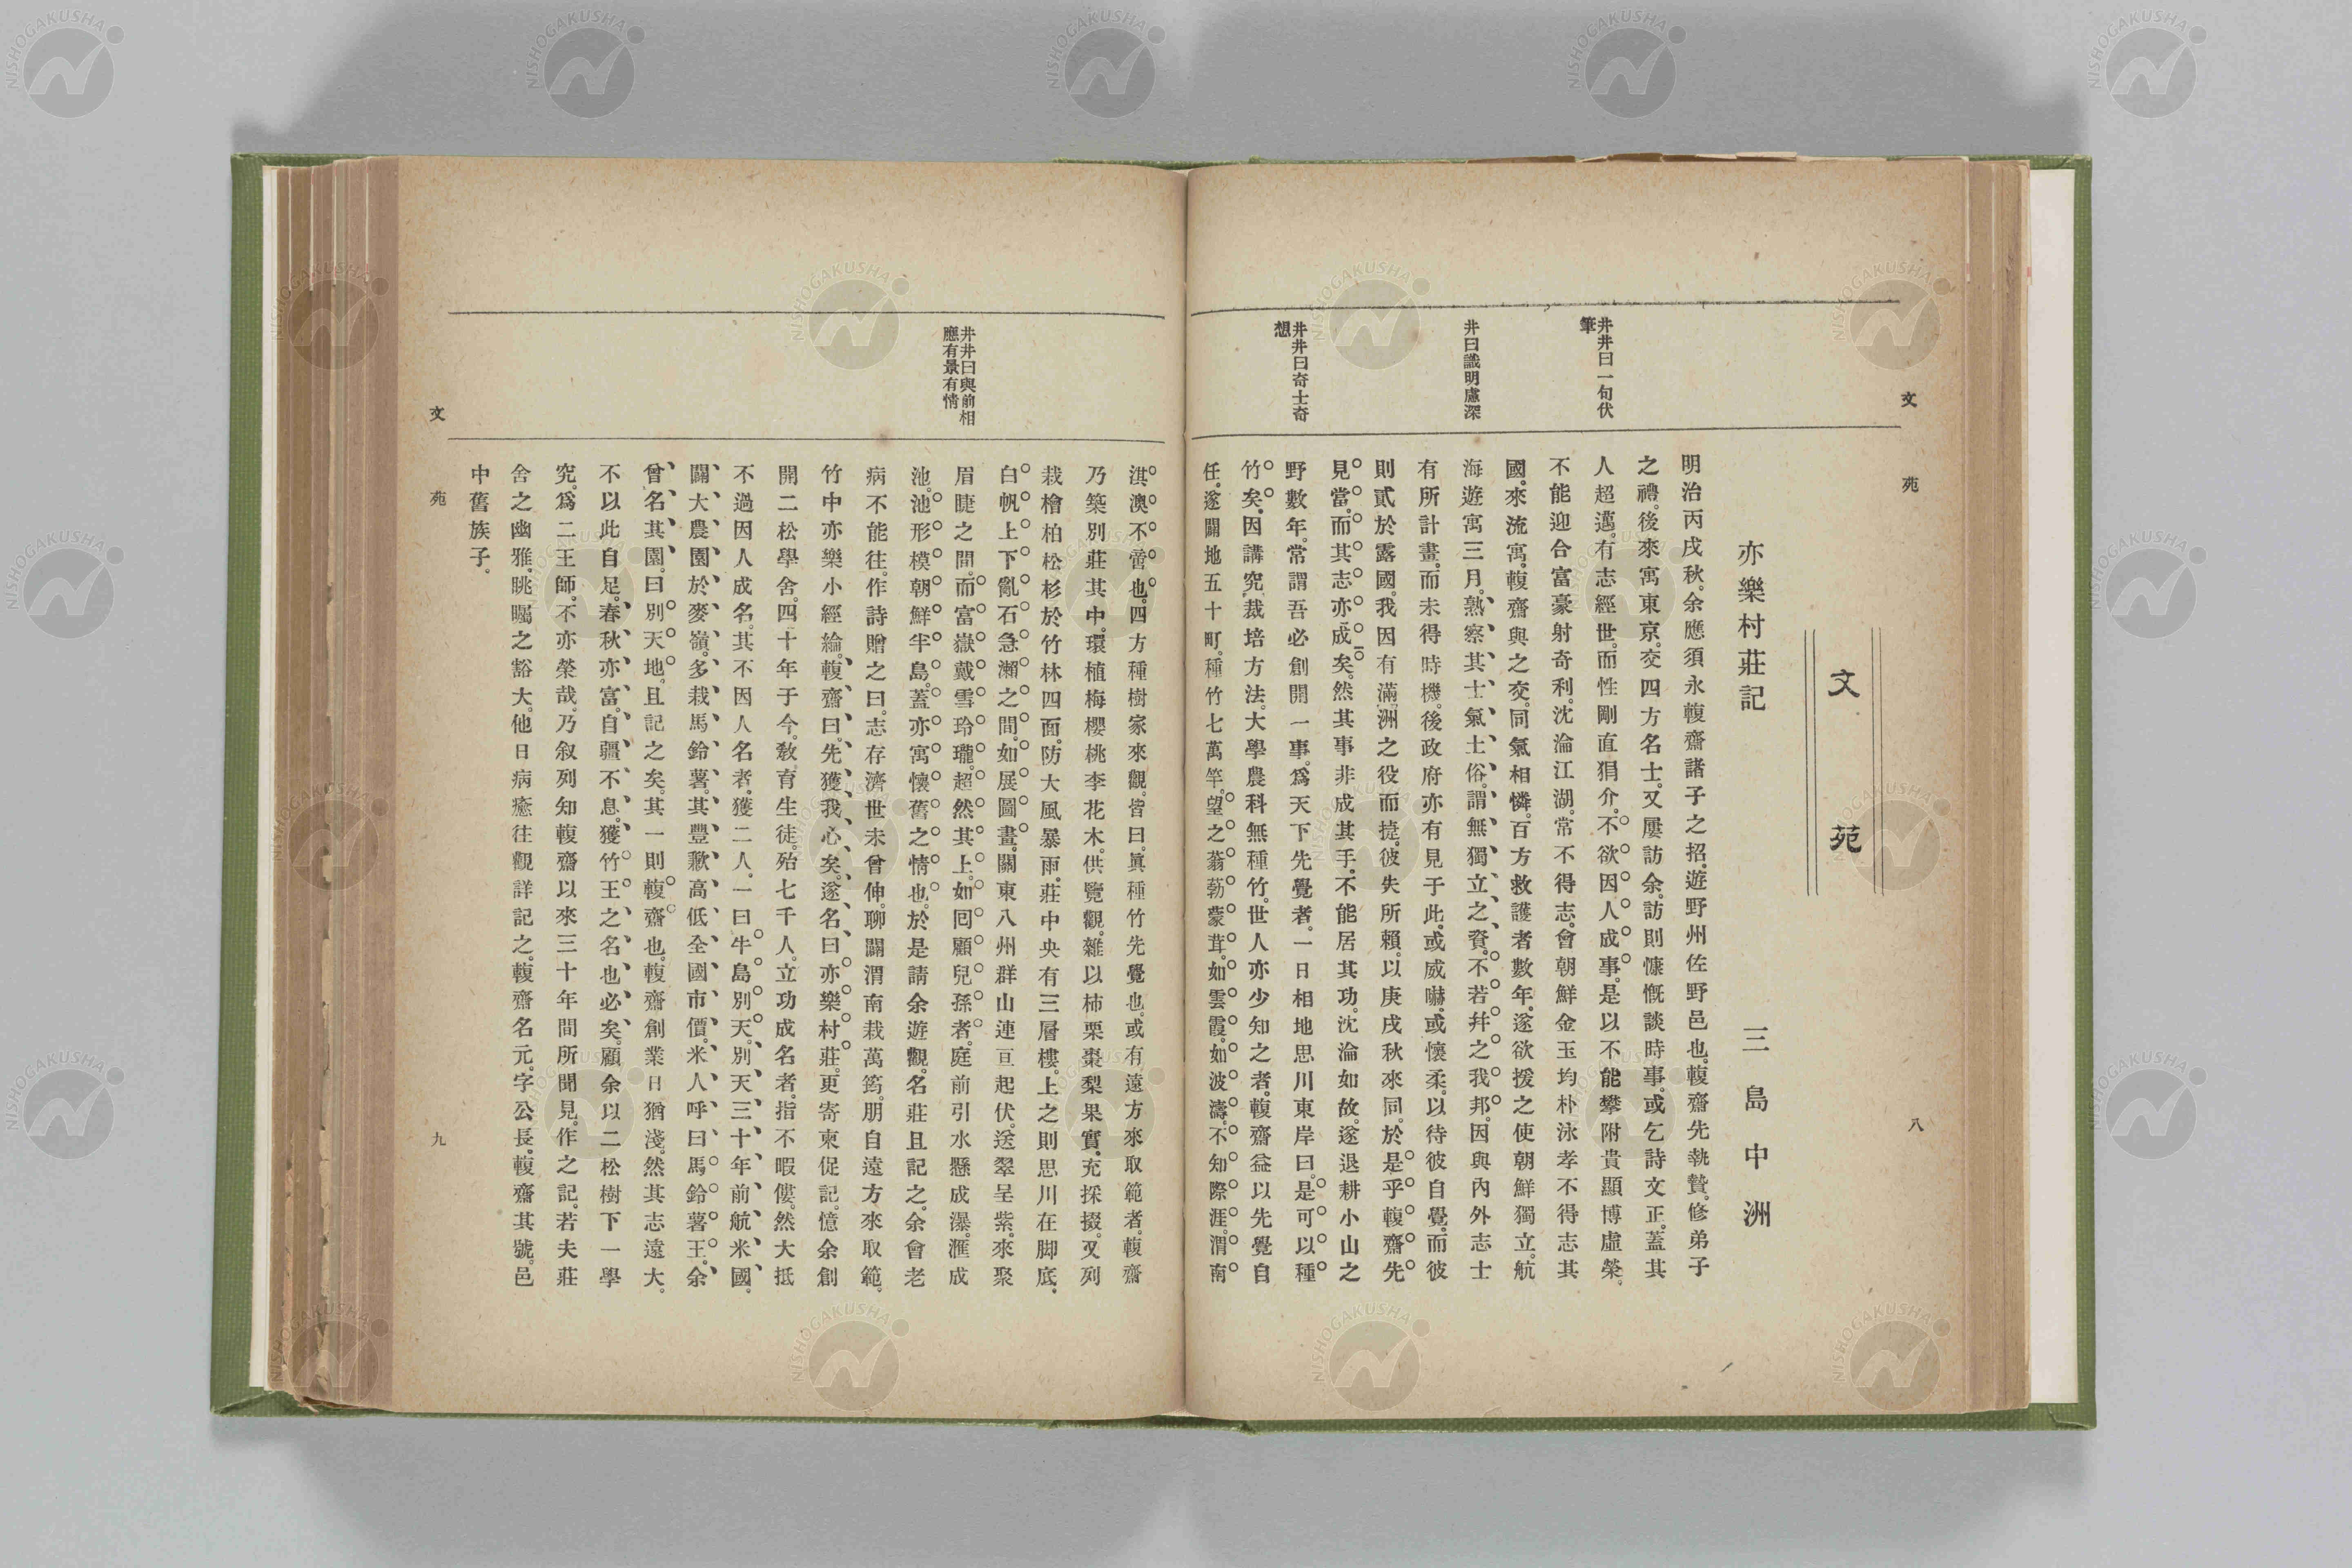 文苑
八
文苑
亦樂村莊記
三島中洲
井井曰一句伏
筆
井曰識明慮深
井井曰奇士奇
想
明治丙戌秋。余應須永輹齋諸子之招。遊野州佐野邑也。輹齋先執贄。修弟子
之禮。後來寓東京。交四方名士。又屢訪余。訪則慷慨談時事。或乞詩文正。蓋其
人超邁。有志經世。而性剛直狷介。不欲因人成事。是以不能攀附貴顯博虛榮。
不能迎合富豪射奇利。沈淪江湖。常不得志。會朝鮮金玉均朴泳孝不得志其
國。來流寓。輹齋與之交。同氣相憐。百方救護者數年。遂欲援之使朝鮮獨立。航
海遊寓三月。熟察其士氣土俗。謂無獨立之資。不若幷之我邦。因與內外志士
有所計畫。而未得時機。後政府亦有見于此。或威嚇。或懷柔。以待彼自覺。而彼
則貳於露國。我因有滿洲之役而捷。彼失所賴。以庚戌秋來同。於是乎輹齋先
見當。而其志亦成矣。然其事非成其手。不能居其功。沈淪如故。遂退耕小山之
野數年。常謂吾必創開一事。爲天下先覺者。一日相地思川東岸曰。是可以種
竹矣。因講究裁培方法。大學農科無種竹。世人亦少知之者。輹齋益以先覺自
任。遂闢地五十町。種竹七萬竿。望之蓊勃蒙茸。如雲霞。如波濤。不知際涯。渭南
井井曰與前相
應有景有情
淇澳不啻也。四方種樹家來觀。皆曰。眞種竹先覺也。或有遠方來取範者。輹齋
乃築別莊其中。環植梅櫻桃李花木。供覽觀。雜以柿栗棗梨果實。充採掇。又列
栽檜柏松杉於竹林四面。防大風暴雨。莊中央有三層樓。上之則思川在脚底。
白帆上下亂石急瀨之間。如展圖畫。關東八州群山連亘起伏。送翠呈紫。來聚
眉睫之間。而富嶽戴雪玲瓏。超然其上。如囘顧兒孫者。庭前引水懸成瀑。滙成
池。池形模朝鮮半島。蓋亦寓懷舊之情也。於是請余遊觀。名莊且記之。余會老
病不能往。作詩贈之曰。志存濟世未曾伸。聊闢渭南栽萬筠。朋自遠方來取範。
竹中亦樂小經綸。輹齋曰。先獲我心矣。遂名曰亦樂村莊。更寄柬促記。憶余創
開二松學舍。四十年于今。敎育生徒。殆七千人。立功成名者。指不暇僂。然大抵
不過因人成名。其不因人名者。獲二人。一曰牛島別天。別天三十年前航米國。
闢大農園於麥嶺。多栽馬鈴薯。其豐歉高低全國市價。米人呼曰馬鈴薯王。余
曾名其園。曰別天地。且記之矣。其一則輹齋也。輹齋創業日猶淺。然其志遠大。
不以此自足。春秋亦富。自疆不息。獲竹王之名也必矣。顧余以二松樹下一學
究。爲二王師。不亦榮哉。乃叙列知輹齋以來三十年間所聞見。作之記。若夫莊
舍之幽雅。眺矚之豁大。他日病癒往觀詳記之。輹齋名元。字公長。輹齋其號。邑
中舊族子。
文苑
九